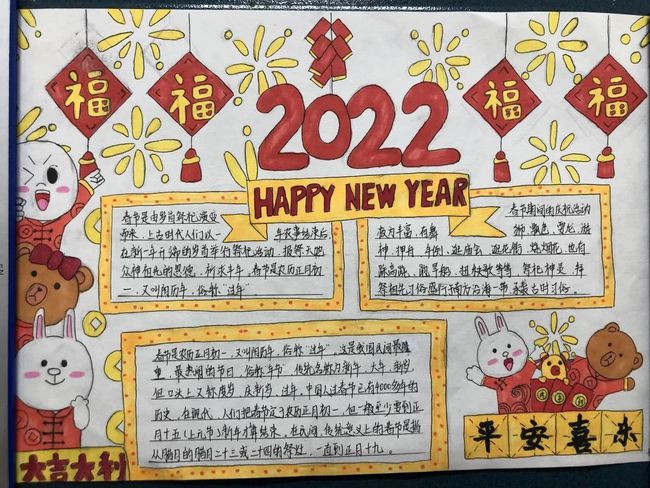 福 福 福 福
2022
HAPPY NEW YEAR
春节是由岁首祈祀演变
而来,上古时代人们以一 年农事结束后,
在新一年开端的岁首举行祭祀活动,报祭天地
众神和先的恩德,祈求丰年,春节是农历正月初
一,又叫阴历年,俗称“过年”
春节期间的庆祝活动
极为丰富,有舞
狮、飘色、耍龙、游
神、押舟、年例、逛庙会、逛花街、烧烟花,也有
踩高跷、跑旱船、扭秧歌等等,祭祀神灵、拜
祭祖先习俗盛行于南方沿海一带,古时习俗。
春节是农历正月初一,又叫阴历年,俗称“过年”。这是我国民间最隆
重、最热闹的节日,俗称“年节”传统名称为新年、大年、新岁,
但口头上又称度岁、庆新岁、过年,中国人过春节已有4000多年的
历史,在现代,人们把春节定于农历正月初一,但一般至少要到正
月十五(上元节)新年才算结束,在民间,传统意义上的春节是指
从腊月的腊月二十三或二十四的祭灶,一直到正月十九。
大吉大利
平安喜乐